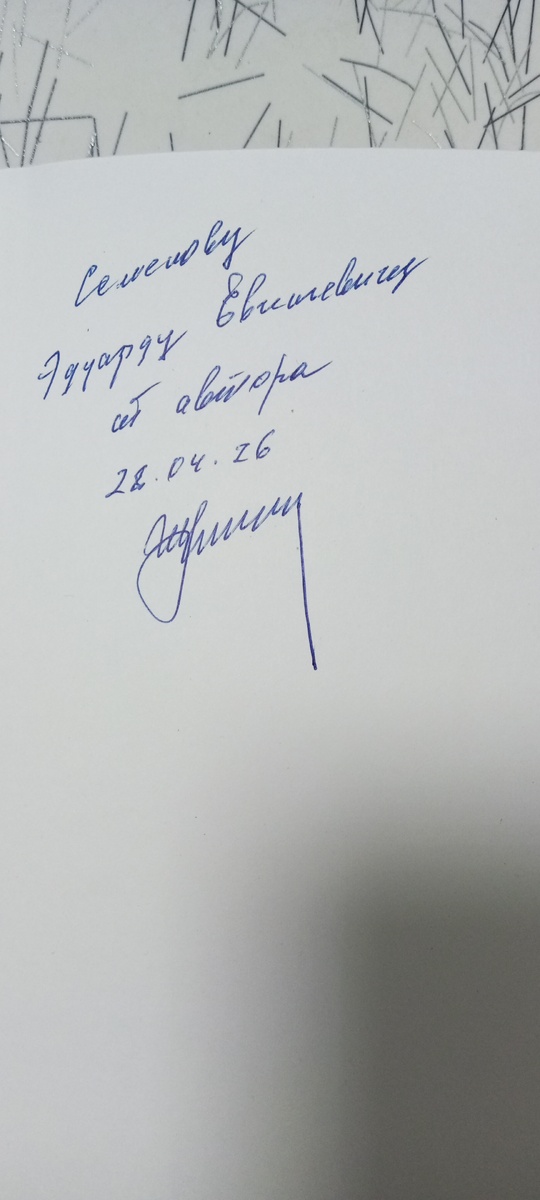 Семенову
Эдуарду Евгеньевичу
от автора
28.04.26